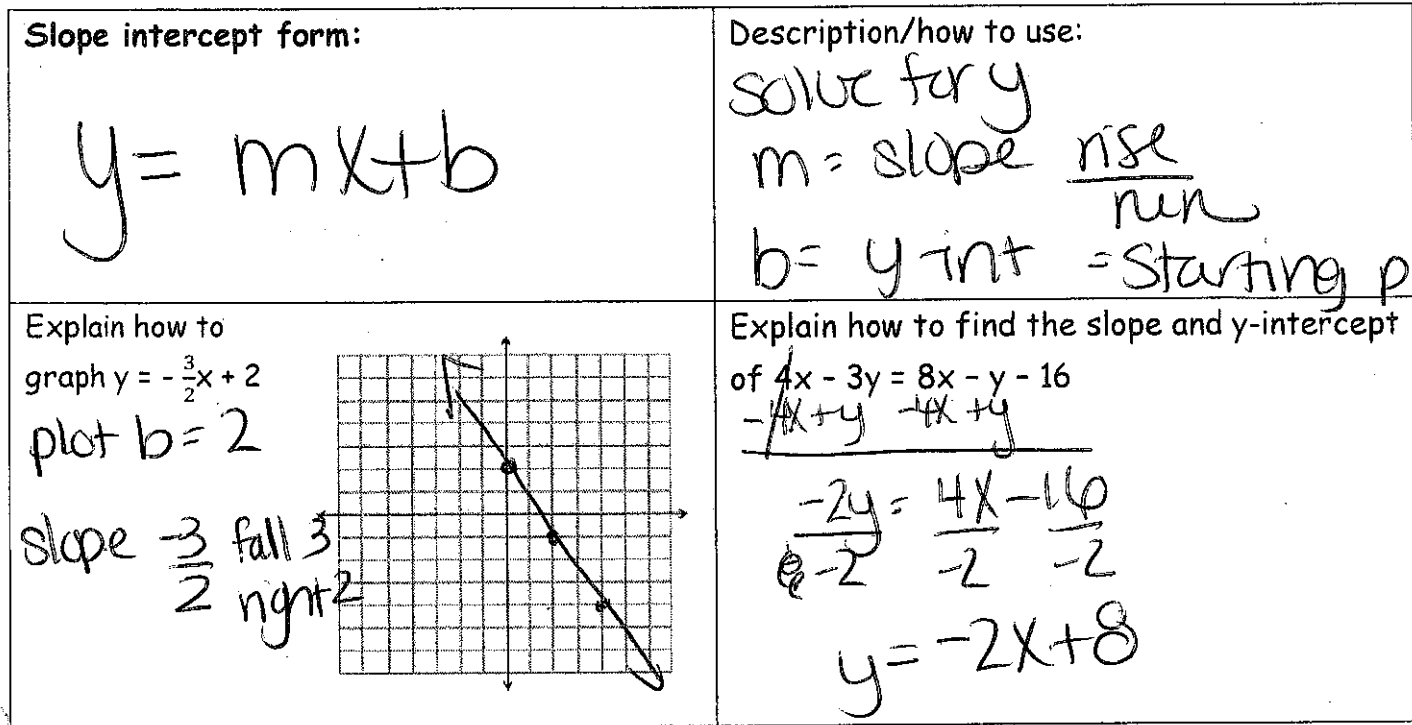 Slope intercept form:
y = mx+b
Description/how to use:
solve for y
m = slope rise/run
b = y-int = starting p
Explain how to
graph y = -3/2x + 2
plot b = 2
slope -3/2 fall 3
right 2
Explain how to find the slope and y-intercept
of 4x - 3y = 8x - y - 16
-4x +y -4x +y
-2y = 4x - 16
-2 -2 -2
y = -2x+8